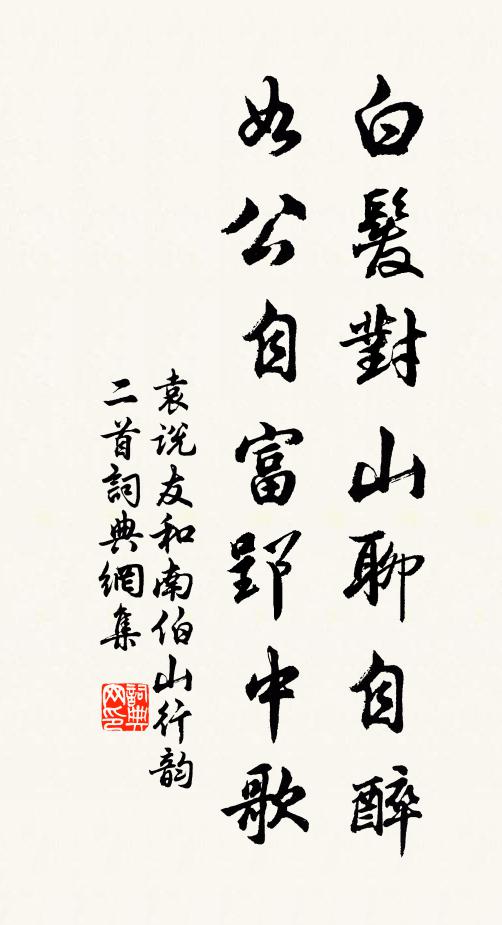 白髮對山聊自醉
如公自富郢中歌
袁説友和南伯山行韵
二首詞典網集
詞典网印